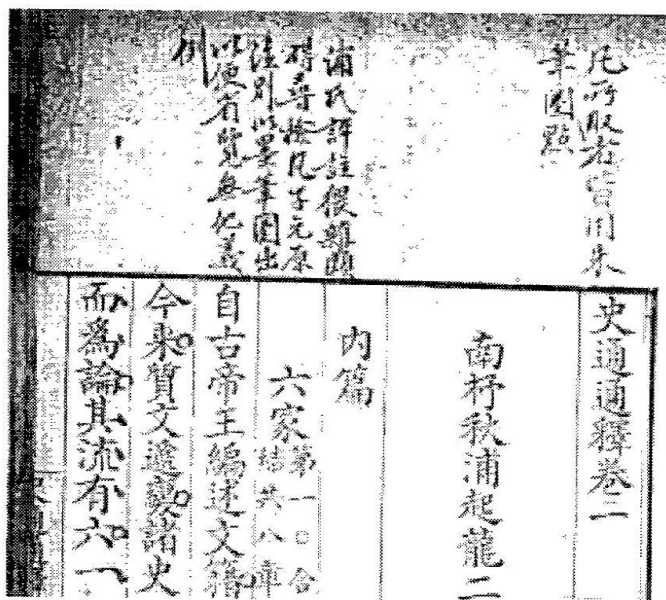 凡所取者皆用朱
筆圈點
浦氏評註猥雜頗
碍尋檢凡子元原
注別以墨筆圈出
以便省覽無他義
例
史通通釋卷一
南杼秋浦起龍二
內篇
六家第一○合
結共八章
自古帝王編述文籍
今來質文遞變諸史
而爲論其流有六一